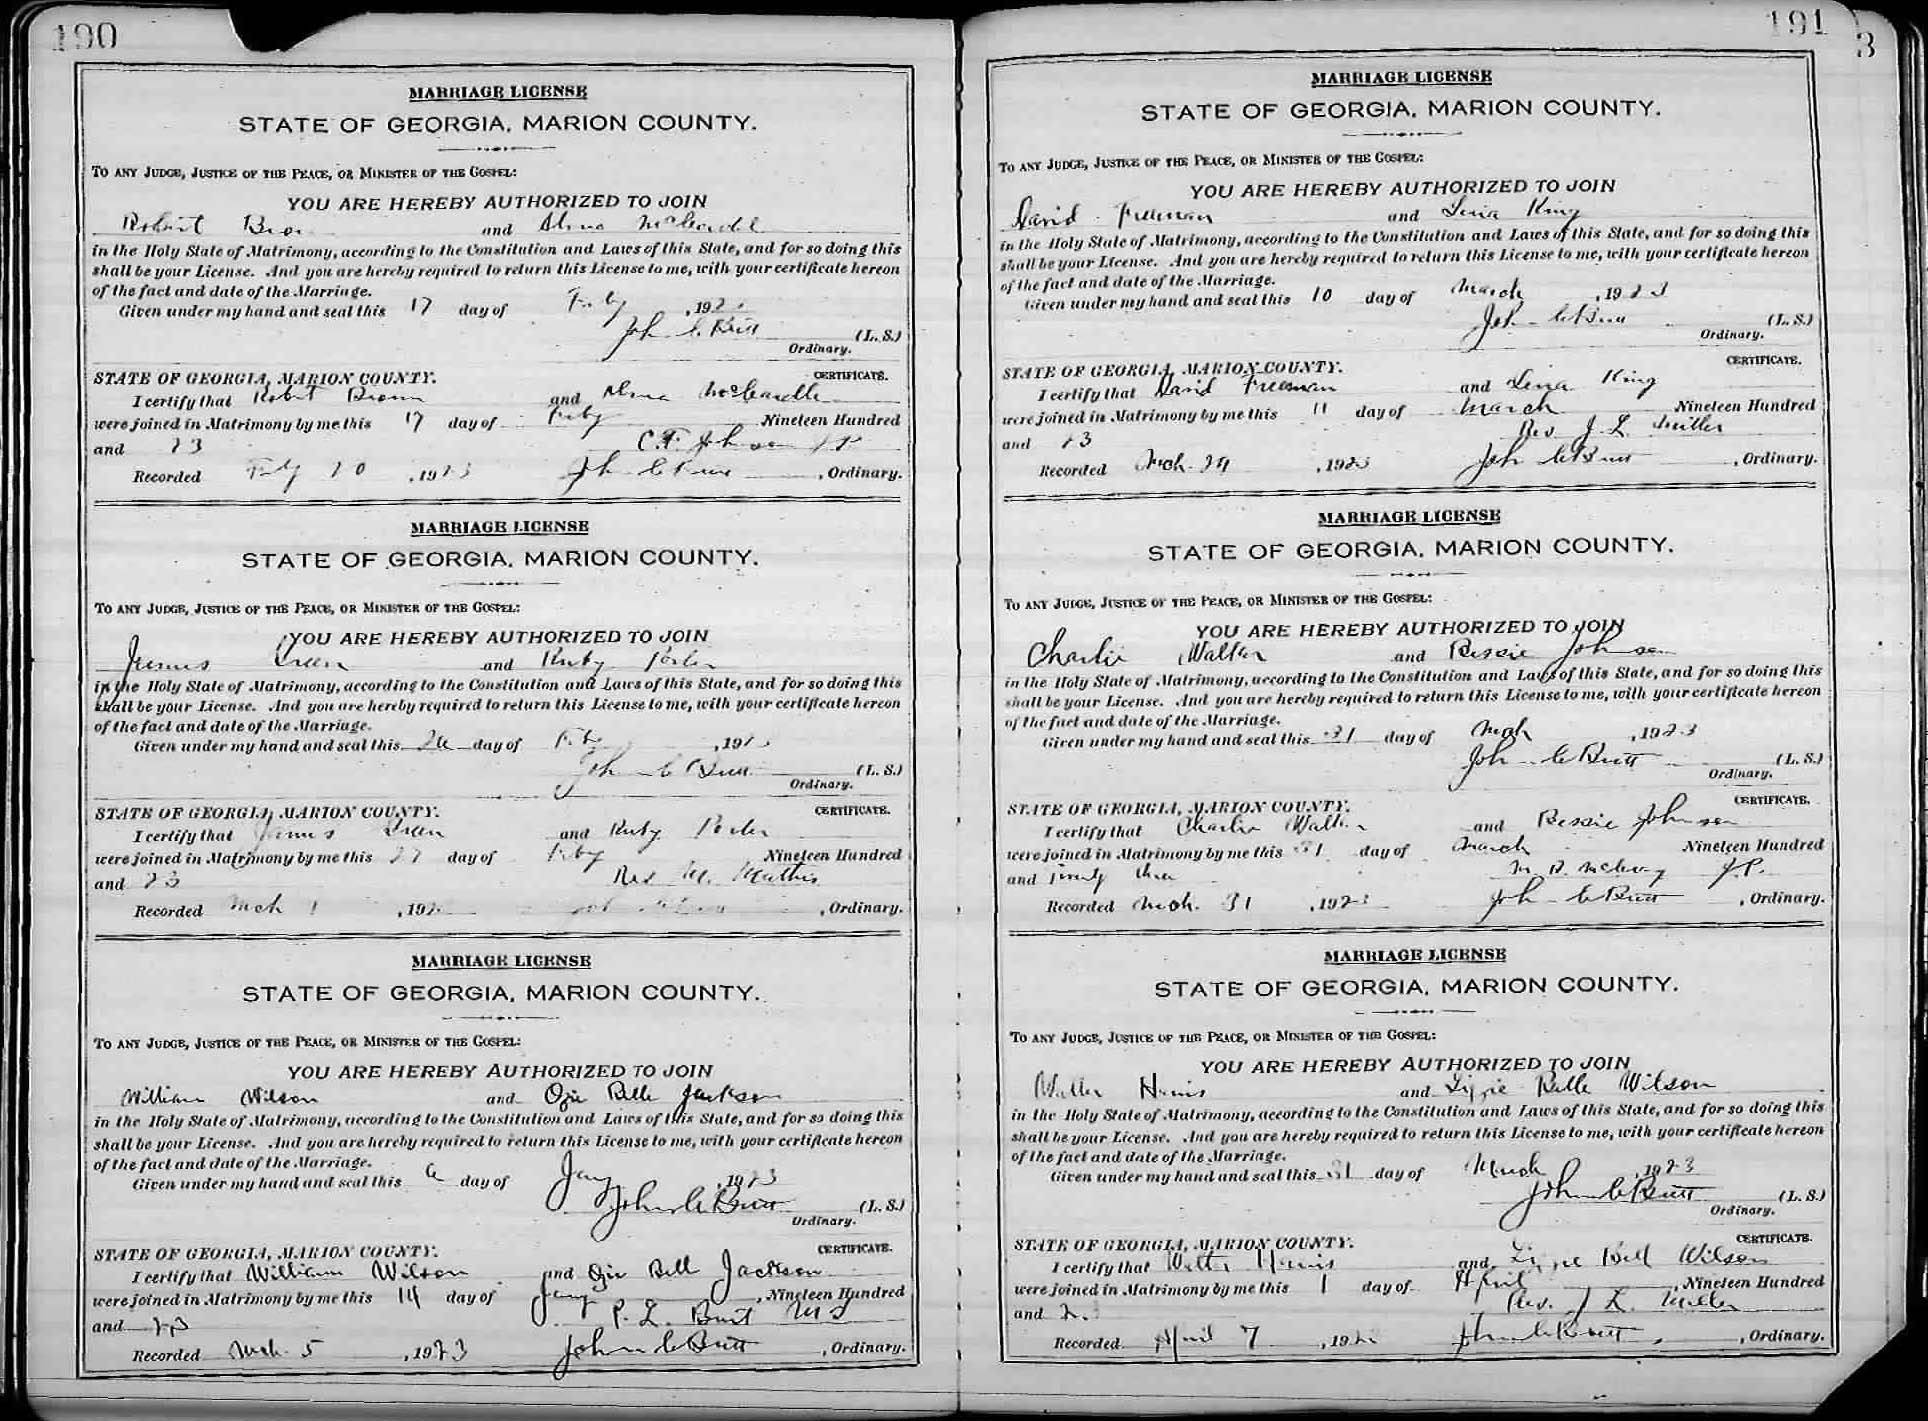 190
MARRIAGE LICENSE
STATE OF GEORGIA, MARION COUNTY.
TO ANY JUDGE, JUSTICE OF THE PEACE, OR MINISTER OF THE GOSPEL:
YOU ARE HEREBY AUTHORIZED TO JOIN
Robert and Alma
in the Holy State of Matrimony, according to the Constitution and Laws of this State, and for so doing this
shall be your License. And you are hereby required to return this License to me, with your certificate hereon
of the fact and date of the Marriage.
Given under my hand and seal this 17 day of Feby , 192
John C Butt (L. S.)
Ordinary.
CERTIFICATE.
STATE OF GEORGIA, MARION COUNTY.
I certify that Robert Brown and Alma
were joined in Matrimony by me this 17 day of Feby Nineteen Hundred
and 23 C.F. Johnson J P
Recorded Feby 20 , 1923 John C Butt , Ordinary.
MARRIAGE LICENSE
STATE OF GEORGIA, MARION COUNTY.
TO ANY JUDGE, JUSTICE OF THE PEACE, OR MINISTER OF THE GOSPEL:
YOU ARE HEREBY AUTHORIZED TO JOIN
James Green and Ruby Porter
in the Holy State of Matrimony, according to the Constitution and Laws of this State, and for so doing this
shall be your License. And you are hereby required to return this License to me, with your certificate hereon
of the fact and date of the Marriage.
Given under my hand and seal this day of Feb , 192
John C Butt (L. S.)
Ordinary.
CERTIFICATE.
STATE OF GEORGIA, MARION COUNTY.
I certify that James Green and Ruby Porter
were joined in Matrimony by me this 27 day of Feby Nineteen Hundred
and 23 Rev M. Mathis
Recorded Mch 1 , 192 , Ordinary.
MARRIAGE LICENSE
STATE OF GEORGIA, MARION COUNTY.
TO ANY JUDGE, JUSTICE OF THE PEACE, OR MINISTER OF THE GOSPEL:
YOU ARE HEREBY AUTHORIZED TO JOIN
William Wilson and Ozie Belle Jackson
in the Holy State of Matrimony, according to the Constitution and Laws of this State, and for so doing this
shall be your License. And you are hereby required to return this License to me, with your certificate hereon
of the fact and date of the Marriage.
Given under my hand and seal this day of Jany , 1923
John C Butt (L. S.)
Ordinary.
CERTIFICATE.
STATE OF GEORGIA, MARION COUNTY.
I certify that William Wilson and Ozie Bell Jackson
were joined in Matrimony by me this 14 day of Jany , Nineteen Hundred
and 23 P. L. Burt M G
Recorded Mch. 5 , 1923 John C Butt , Ordinary.
191
3
MARRIAGE LICENSE
STATE OF GEORGIA, MARION COUNTY.
TO ANY JUDGE, JUSTICE OF THE PEACE, OR MINISTER OF THE GOSPEL:
YOU ARE HEREBY AUTHORIZED TO JOIN
David Freeman and Lena King
in the Holy State of Matrimony, according to the Constitution and Laws of this State, and for so doing this
shall be your License. And you are hereby required to return this License to me, with your certificate hereon
of the fact and date of the Marriage.
Given under my hand and seal this 10 day of March , 1923
John C Butt (L. S.)
Ordinary.
CERTIFICATE.
STATE OF GEORGIA, MARION COUNTY.
I certify that David Freeman and Lena King
were joined in Matrimony by me this 11 day of March Nineteen Hundred
and 23 Rev J L Miller
Recorded Mch. 24 , 1923 John C Butt , Ordinary.
MARRIAGE LICENSE
STATE OF GEORGIA, MARION COUNTY.
TO ANY JUDGE, JUSTICE OF THE PEACE, OR MINISTER OF THE GOSPEL:
YOU ARE HEREBY AUTHORIZED TO JOIN
Charlie Walker and Bessie Johnson
in the Holy State of Matrimony, according to the Constitution and Laws of this State, and for so doing this
shall be your License. And you are hereby required to return this License to me, with your certificate hereon
of the fact and date of the Marriage.
Given under my hand and seal this 31 day of Mch , 1923
John C Butt (L. S.)
Ordinary.
CERTIFICATE.
STATE OF GEORGIA, MARION COUNTY.
I certify that Charlie Walker and Bessie Johnson
were joined in Matrimony by me this 31 day of March Nineteen Hundred
and twenty three J.P.
Recorded Mch. 31 , 1923 John C Butt , Ordinary.
MARRIAGE LICENSE
STATE OF GEORGIA, MARION COUNTY.
TO ANY JUDGE, JUSTICE OF THE PEACE, OR MINISTER OF THE GOSPEL:
YOU ARE HEREBY AUTHORIZED TO JOIN
Walter Harris and Lizzie Belle Wilson
in the Holy State of Matrimony, according to the Constitution and Laws of this State, and for so doing this
shall be your License. And you are hereby required to return this License to me, with your certificate hereon
of the fact and date of the Marriage.
Given under my hand and seal this 31 day of March , 1923
John C Butt (L. S.)
Ordinary.
CERTIFICATE.
STATE OF GEORGIA, MARION COUNTY.
I certify that Walter Harris and Lizzie Bell Wilson
were joined in Matrimony by me this 1 day of April , Nineteen Hundred
and Rev. J L. Miller
Recorded April 7 , 192 John C Butt , Ordinary.